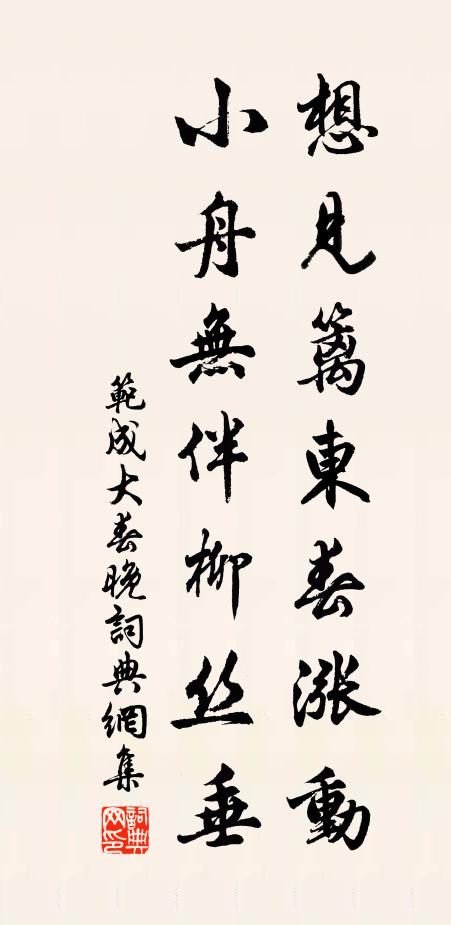 想見籬東春漲動
小舟無伴柳丝垂
範成大春晚詞典網集
詞典網印